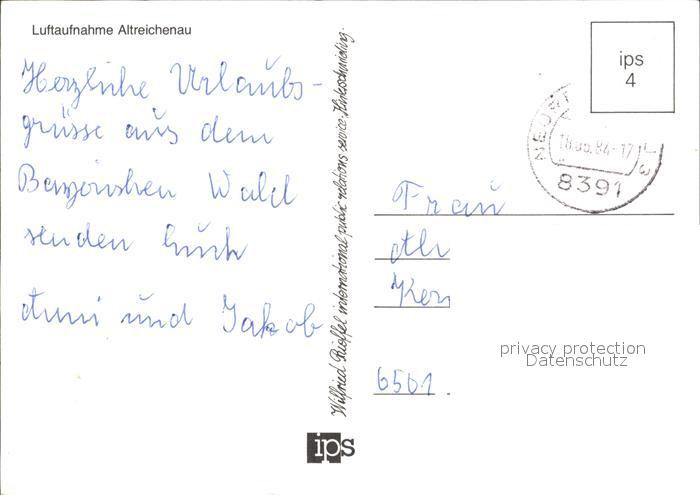 Luftaufnahme Altreichenau
Herzliche Urlaubs-
grüsse aus dem
Bayerischen Wald
senden Euch
Anni und Jakob
Wilfried Prieffel international public relations service
ips
ips
4
8391
Frau
6501
privacy protection
Datenschutz